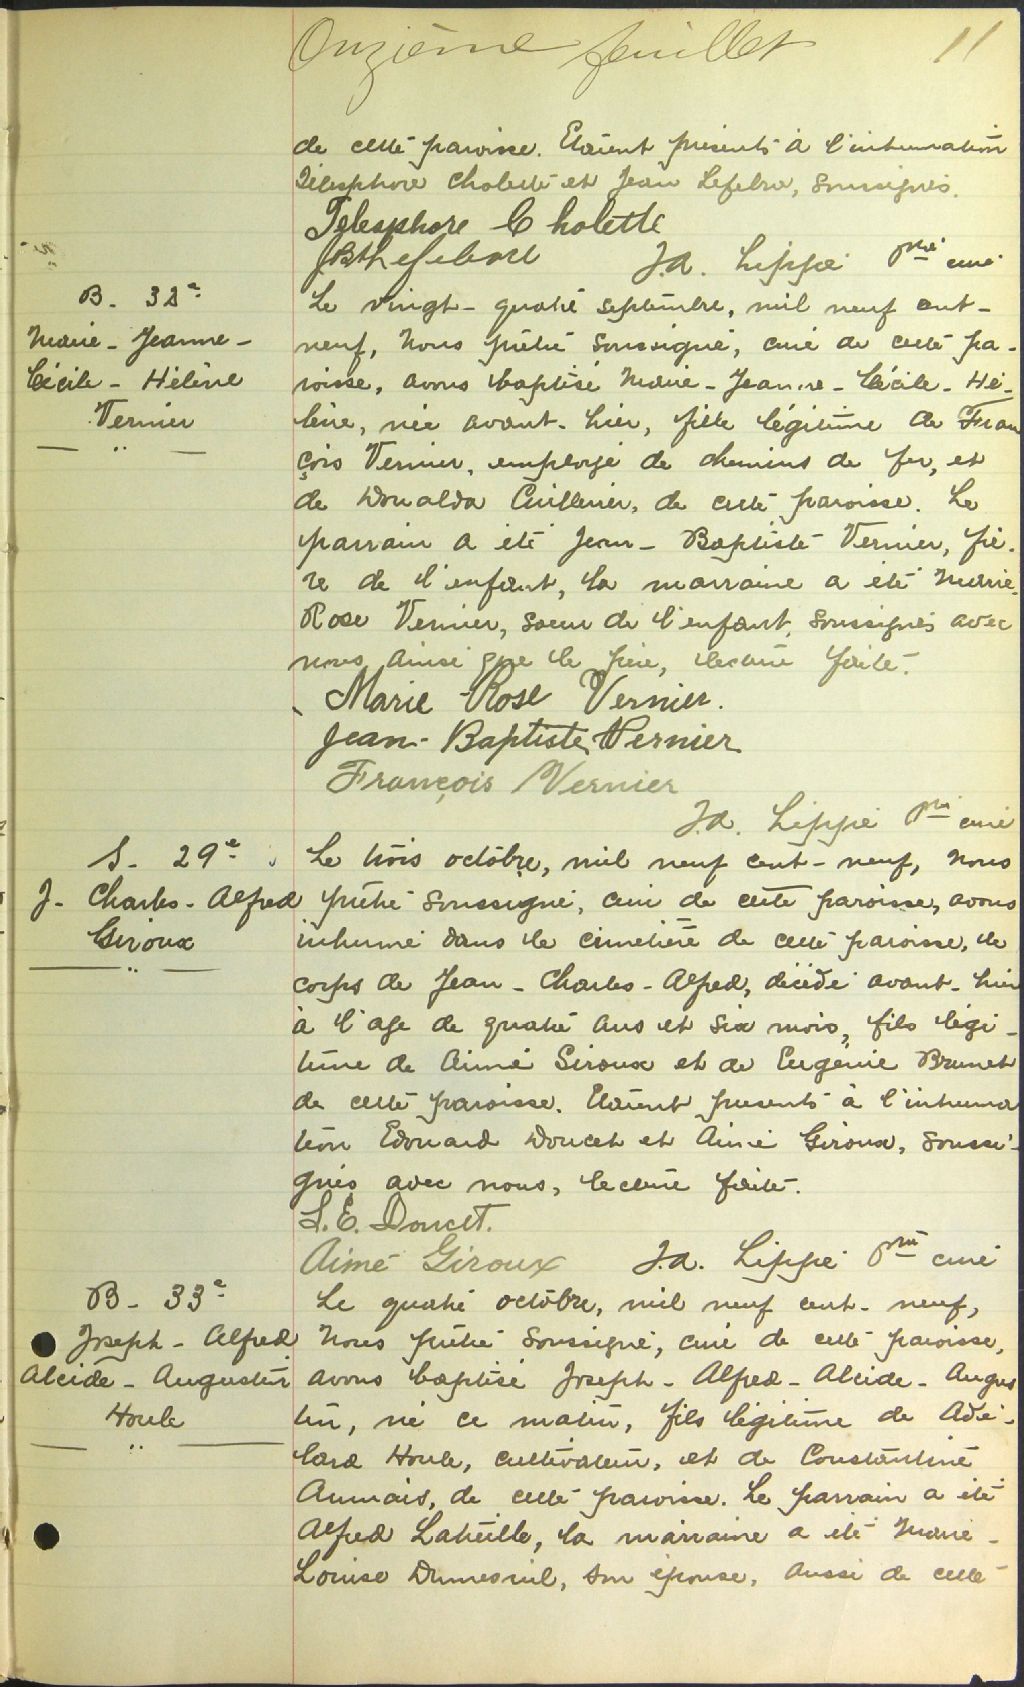 Onzième feuillet 11
de cette paroisse. Etaient présents à l'inhumation
Télesphore Cholette et Jean Lefebre, soussignés.
Telesphore Cholette
JBte Lefebvre J.A. Lippé Ptre curé
B. 32e
Marie-Jeanne-
Cécile-Hélène
Vernier
Le vingt-quatre septembre, mil neuf cent-
neuf, Nous prêtre soussigné, curé de cette pa-
roisse, avons baptisé Marie-Jeanne-Cécile-Hé-
lène, née avant-hier, fille légitime de Fran
çois Vernier, employé de chemins de fer, et
de Donalda Cuillerier, de cette paroisse. Le
parrain a été Jean-Baptiste Vernier, frè-
re de l'enfant, la marraine a été Marie-
Rose Vernier, soeur de l'enfant, soussignés avec
nous ainsi que le père, lecture faite.
Marie Rose Vernier.
Jean-Baptiste Vernier
François Vernier
J.A. Lippé Ptre curé
S. 29e
J. Charles-Alfred
Giroux
Le trois octobre, mil neuf cent-neuf, Nous
prêtre soussigné, curé de cette paroisse, avons
inhumé dans le cimetière de cette paroisse, le
corps de Jean-Charles-Alfred, décédé avant-hier
à l'age de quatre ans et six mois, fils légi-
time de Aimé Giroux et de Eugénie Brunet
de cette paroisse. Etaient présents à l'inhuma
tion Edouard Doucet et Aimé Giroux, soussi-
gnés avec nous, lecture faite.
L.E. Doucet.
Aimé Giroux J.A. Lippé Ptre curé
B. 33e
Joseph-Alfred
Alcide-Augustin
Houle
Le quatre octobre, mil neuf cent-neuf,
Nous prêtre soussigné, curé de cette paroisse,
avons baptisé Joseph-Alfred-Alcide-Augus
tin, né ce matin, fils légitime de Adé-
lard Houle, cultivateur, et de Constantine
Aumais, de cette paroisse. Le parrain a été
Alfred Latreille, la marraine a été Marie-
Louise Dumesnil, son épouse, aussi de cette